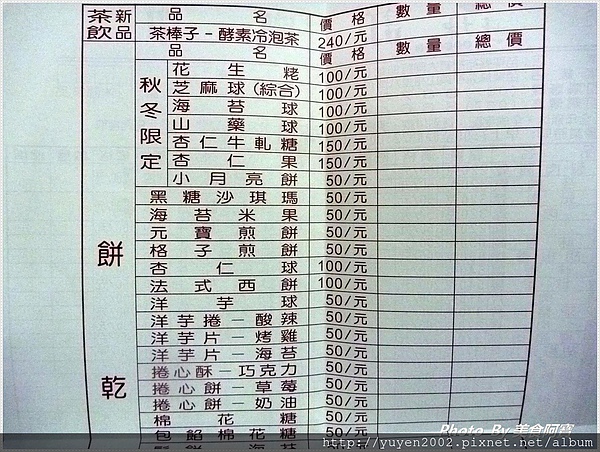 茶飲 新品 品名 價格 數量 總價
茶棒子-酵素冷泡茶 240/元
品名 價格 數量 總價
秋冬限定
花生粩 100/元
芝麻球(綜合) 100/元
海苔球 100/元
山藥球 100/元
杏仁牛軋糖 150/元
杏仁果 150/元
小月亮餅 50/元
餅乾
黑糖沙琪瑪 50/元
海苔米果 50/元
元寶煎餅 50/元
格子煎餅 50/元
杏仁球 100/元
法式西餅 100/元
洋芋球 50/元
洋芋捲-酸辣 50/元
洋芋片-烤雞 50/元
洋芋片-海苔 50/元
捲心酥-巧克力 50/元
捲心餅-草莓 50/元
捲心餅-奶油 50/元
棉花糖 50/元
包餡棉花糖 50/元
Photo By 美食阿寶
http://yuyen2002.pixnet.net/album